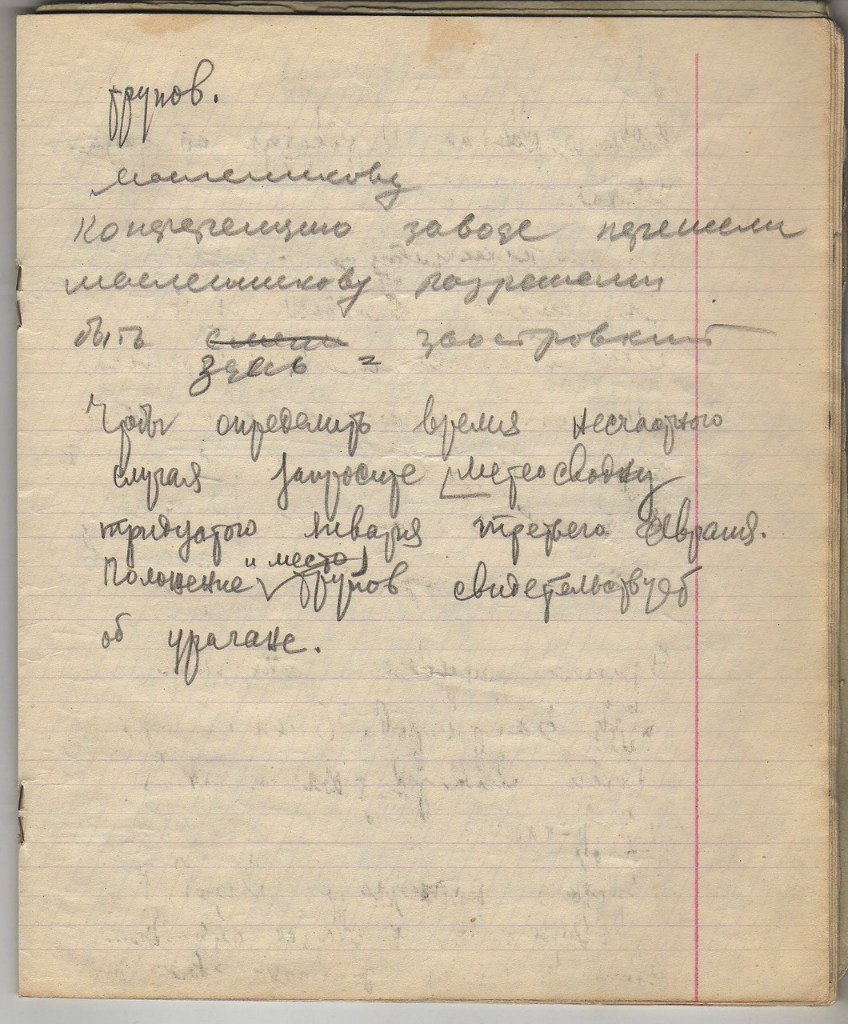 трупов.
масленикову
Конференцию заводе перенели
масленникову разрешении
быть
здесь = заостровкий
Чтобы определить время несчастного
случая запросите метеосводку
тридцатого января третьего февраля.
Положение и место трупов свидетельствует
об урагане.